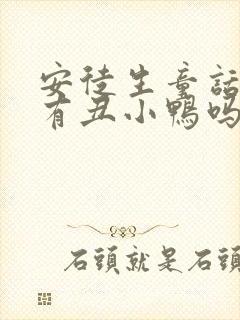 安徒生童話
有丑小鴨吗
石頭就是石頭